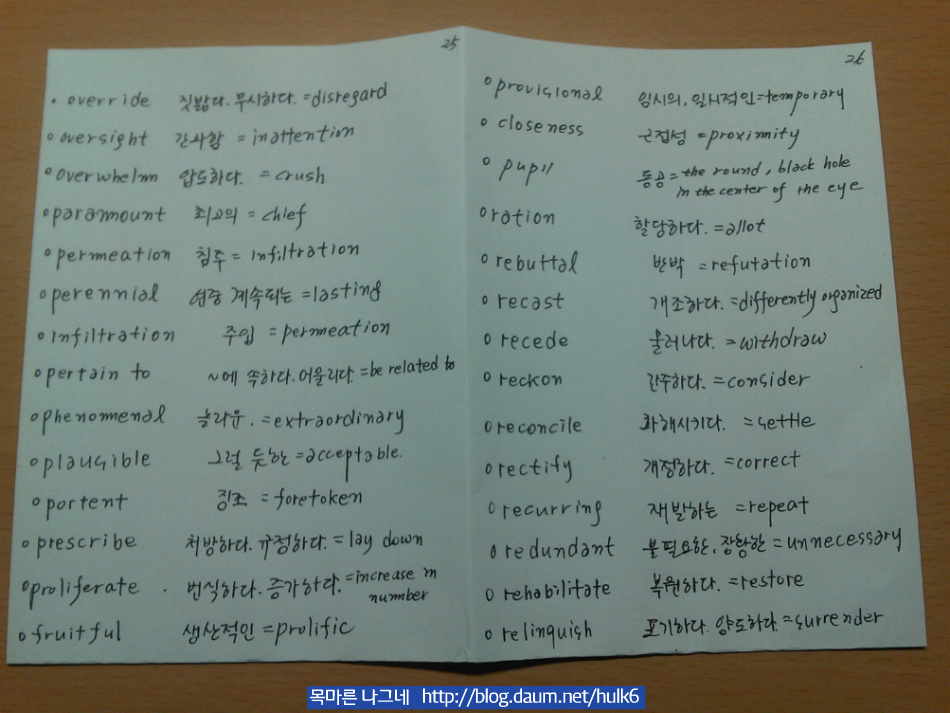 25
override 짓밟다. 무시하다. =disregard
oversight 간사함 = inattention
overwhelm 압도하다. = crush
paramount 최고의 = chief
permeation 침투 = infiltration
perennial 연중 계속되는 =lasting
infiltration 주입 = permeation
pertain to ~에 속하다. 어울리다. =be related to
phenomenal 놀라운. =extraordinary
plausible 그럴 듯한 =acceptable.
portent 징조 = foretoken
prescribe 처방하다. 규정하다. = lay down
proliferate 번식하다. 증가하다. =increase in
number
fruitful 생산적인 = prolific
26
provisional 임시의, 일시적인=temporary
closeness 근접성 =proximity
pupil 동공 = the round, black hole
in the center of the eye
ration 할당하다. =allot
rebuttal 반박 =refutation
recast 개조하다. =differently organized
recede 물러나다. =withdraw
reckon 간주하다. =consider
reconcile 화해시키다. =settle
rectify 개정하다. =correct
recurring 재발하는 =repeat
redundant 불필요한, 장황한 =unnecessary
rehabilitate 복원하다. =restore
relinquish 포기하다. 양도하다.=surrender
목마른 나그네 http://blog.daum.net/hulk6